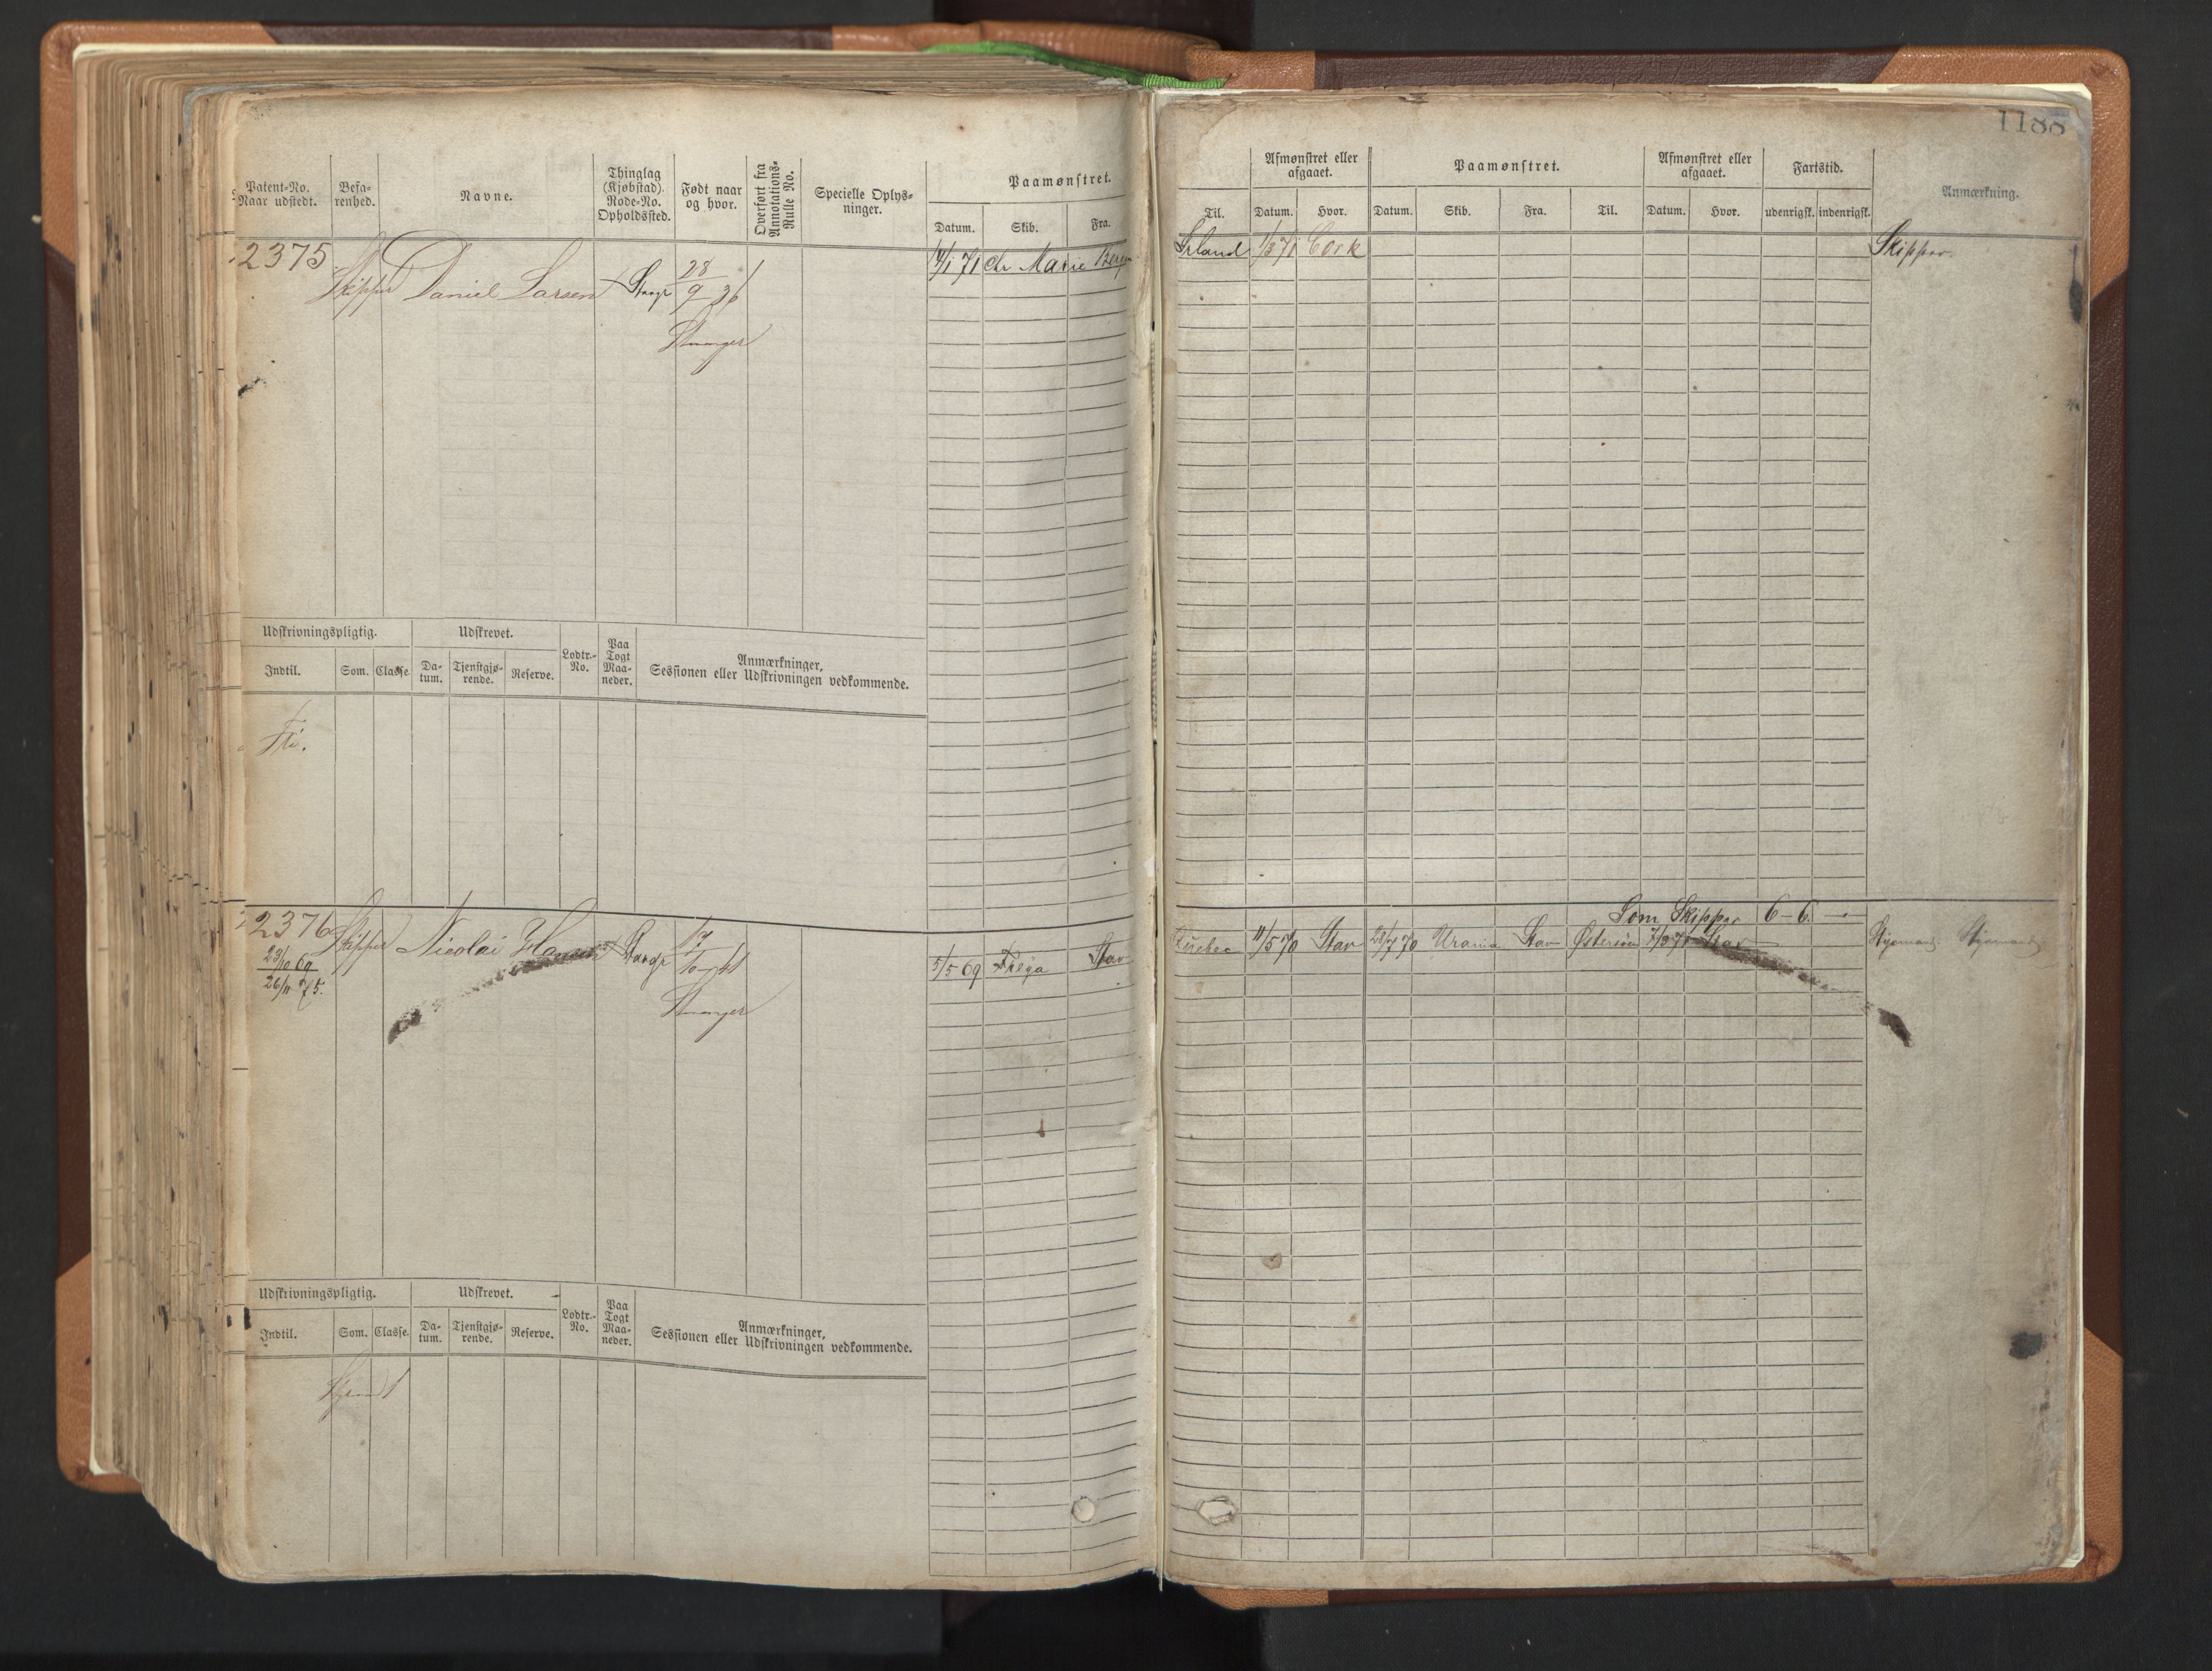 1188
Patent-No. Naar udstedt.
Befarenhed.
Navne.
Thinglag (Kjøbstad). Rode-No. Opholdssted.
Født naar og hvor.
Overført fra Annotations-Rulle No.
Specielle Oplysninger.
Paamønstret.
Datum. Skib. Fra.
Til.
Afmønstret eller afgaaet.
Datum. Hvor.
Paamønstret.
Datum. Skib. Fra. Til.
Afmønstret eller afgaaet.
Datum. Hvor.
Fartstid.
udenrigsk. indenrigsk.
Anmærkning.
2375
Skipper Daniel Larsen
28/9 36
Stavanger
71 Chr Marie Bergen
Irland 1/3 71 Cork
Skipper
Udskrivningspligtig.
Indtil. Som. Classe
Udskrevet.
Datum. Tjenstgjørende. Reserve.
Lodtr.-No.
Paa Togt Maaneder.
Anmærkninger, Sessionen eller Udskrivningen vedkommende.
2376
23/10 69
26/11 75.
Skipper Nicolai Hansen
17/10 41
Stavanger
5/5 69 Freya Stav
Quebec 11/5 70 Stav
28/7 70 Urania Stav Østersøen 7/9 71 Stav
Som Skipper 6-6. -
Styrmand. Styrmand
Udskrivningspligtig.
Indtil. Som. Classe.
Udskrevet.
Datum. Tjenstgjørende. Reserve.
Lodtr.-No.
Paa Togt Maaneder.
Anmærkninger, Sessionen eller Udskrivningen vedkommende.